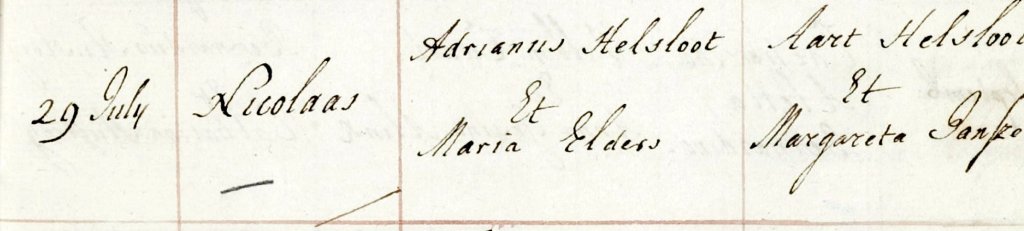 29 July
Nicolaas
Adrianus Helsloot
Et
Maria Elders
Aart Helsloot
Et
Margareta Janse